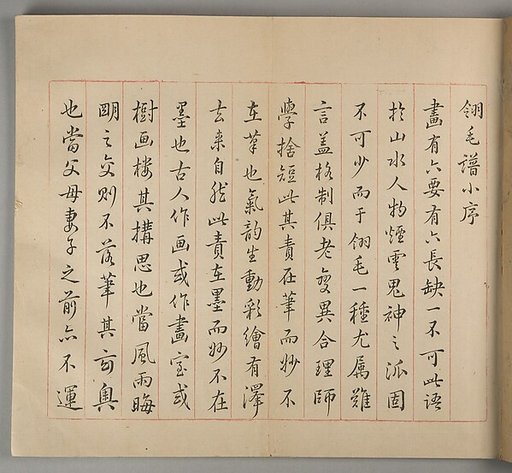 翎毛譜小序
畫有六要有六長缺一不可此語
於山水人物煙雲鬼神之派固
不可少而于翎毛一種尤屬難
言蓋格制俱老變異合理師
學捨短此其責在筆而妙不
在筆也氣韵生動彩繪有澤
去來自然此責在墨而妙不在
墨也古人作画或作畫室或
樹画楼其搆思也當風雨晦
明之交則不落筆其玄奧
也當父母妻子之前亦不運